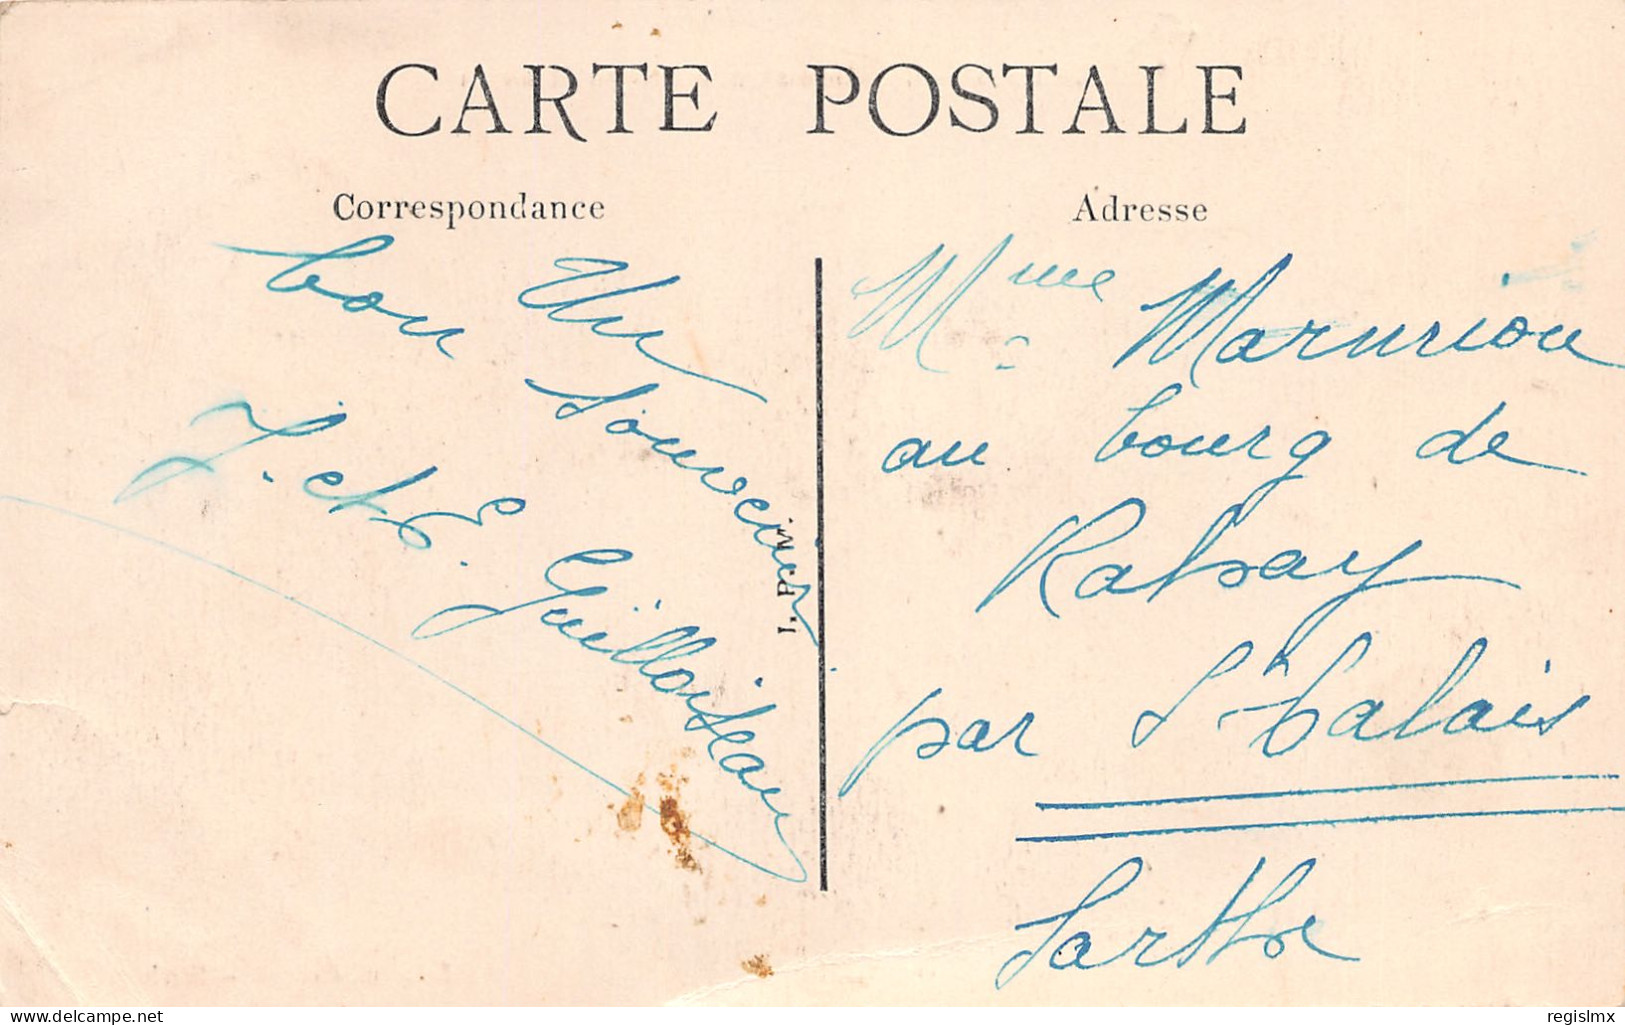 CARTE POSTALE
Correspondance
Un
bon souvenir
J. et E. Guilloiseau
Adresse
Mme
au bourg de
Rahay
par St Calais
Sarthe
delcampe.net
regislmx